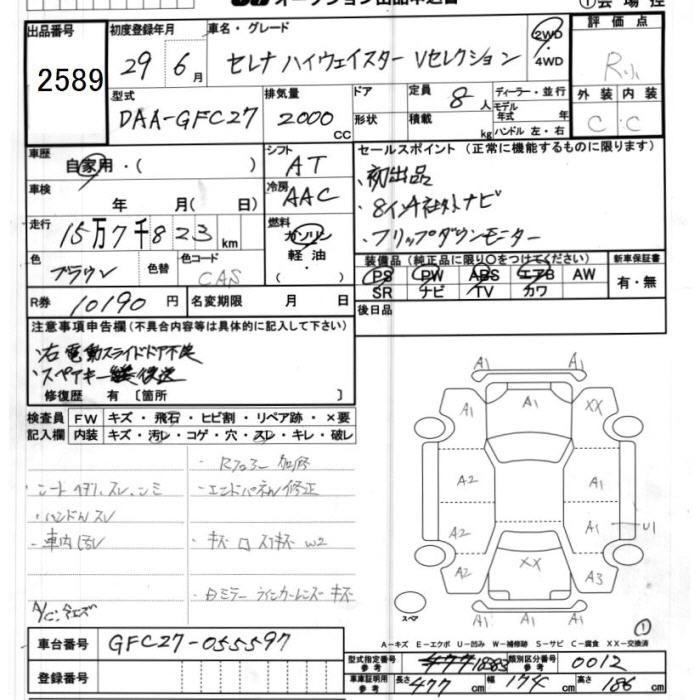 オークション出品申込書
①会場控
出品番号
2589
初度登録年月
29年 6月
車名・グレード
セレナ ハイウェイスター Vセレクション
2WD
4WD
評価点
R小
外装 内装
C C
型式
DAA-GFC27
排気量
2000 CC
ドア
形状
定員 8人
積載 kg
ディーラー・並行
モデル
年式 年
ハンドル 左・右
車歴
自家用・( )
シフト
AT
車検
年 月( 日)
冷房
AAC
走行
15万7千823km
燃料
ガソリン
軽油
( )
色
ブラウン
色替
色コード
CAS
R券 10190円
名変期限 月 日
セールスポイント(正常に機能するものに限ります)
・初出品
・8インチ社外ナビ
・フリップダウンモニター
装備品(純正品に限り○をつけてください)
PS PW ABS エアB AW
SR ナビ TV カワ
新車保証書
有・無
後日品
注意事項申告欄(不具合内容等は具体的に記入して下さい)
・右電動スライドドア不良
・スペアキー後送
修復歴 有〔箇所 〕
検査員 FW キズ・飛石・ヒビ割・リペア跡・×要
記入欄 内装 キズ・汚レ・コゲ・穴・スレ・キレ・破レ
・Rフロアー 加修
・エンドパネル修正
・シート スレ、シミ
・ハンドルスレ
・車内汚レ
W2
・白ミラー ウインカーレンズ キズ
A/C
A1
A1 A1 A1
A1 XX
A2 A1
A2 A1 U1
A2 XX A3
A1 A1
スペア
①
A-キズ E-エクボ U-凹み W-補修跡 S-サビ C-腐食 XX-交換済
車台番号 GFC27-055597
登録番号
型式指定番号 参考 18883
類別区分番号 参考 0012
車庫証明用 参考 長さ 477cm 幅 174cm 高さ 186cm